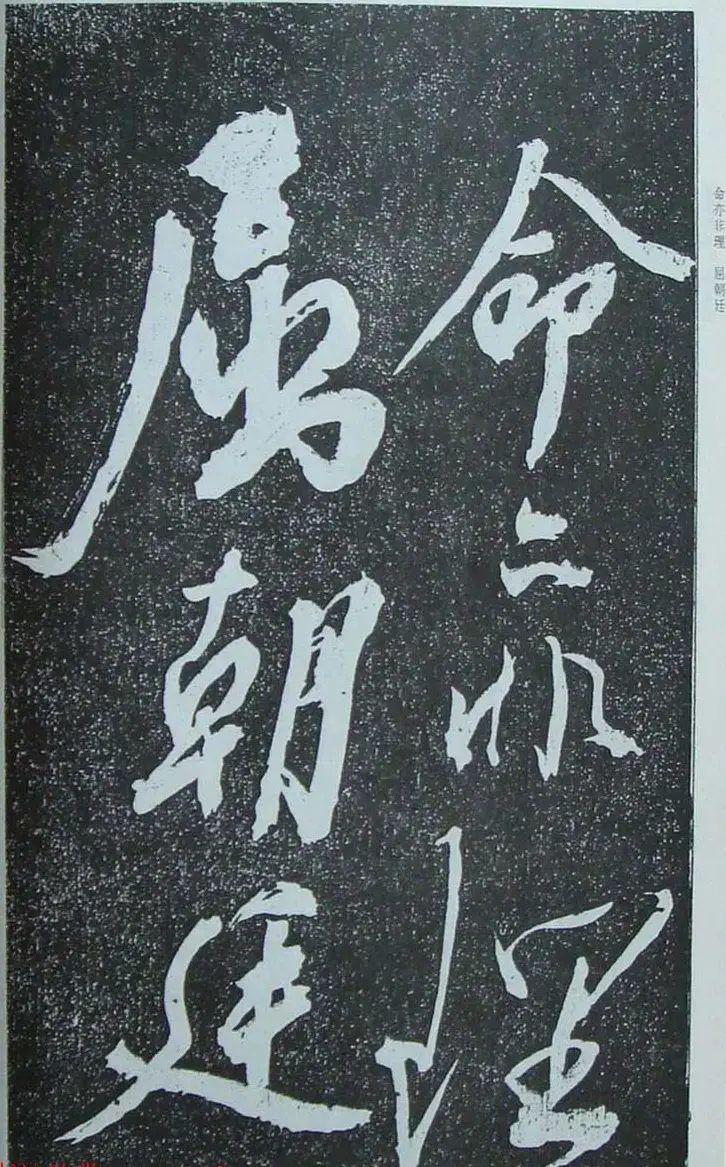 命亦非理
属朝廷
命亦非理 属朝廷